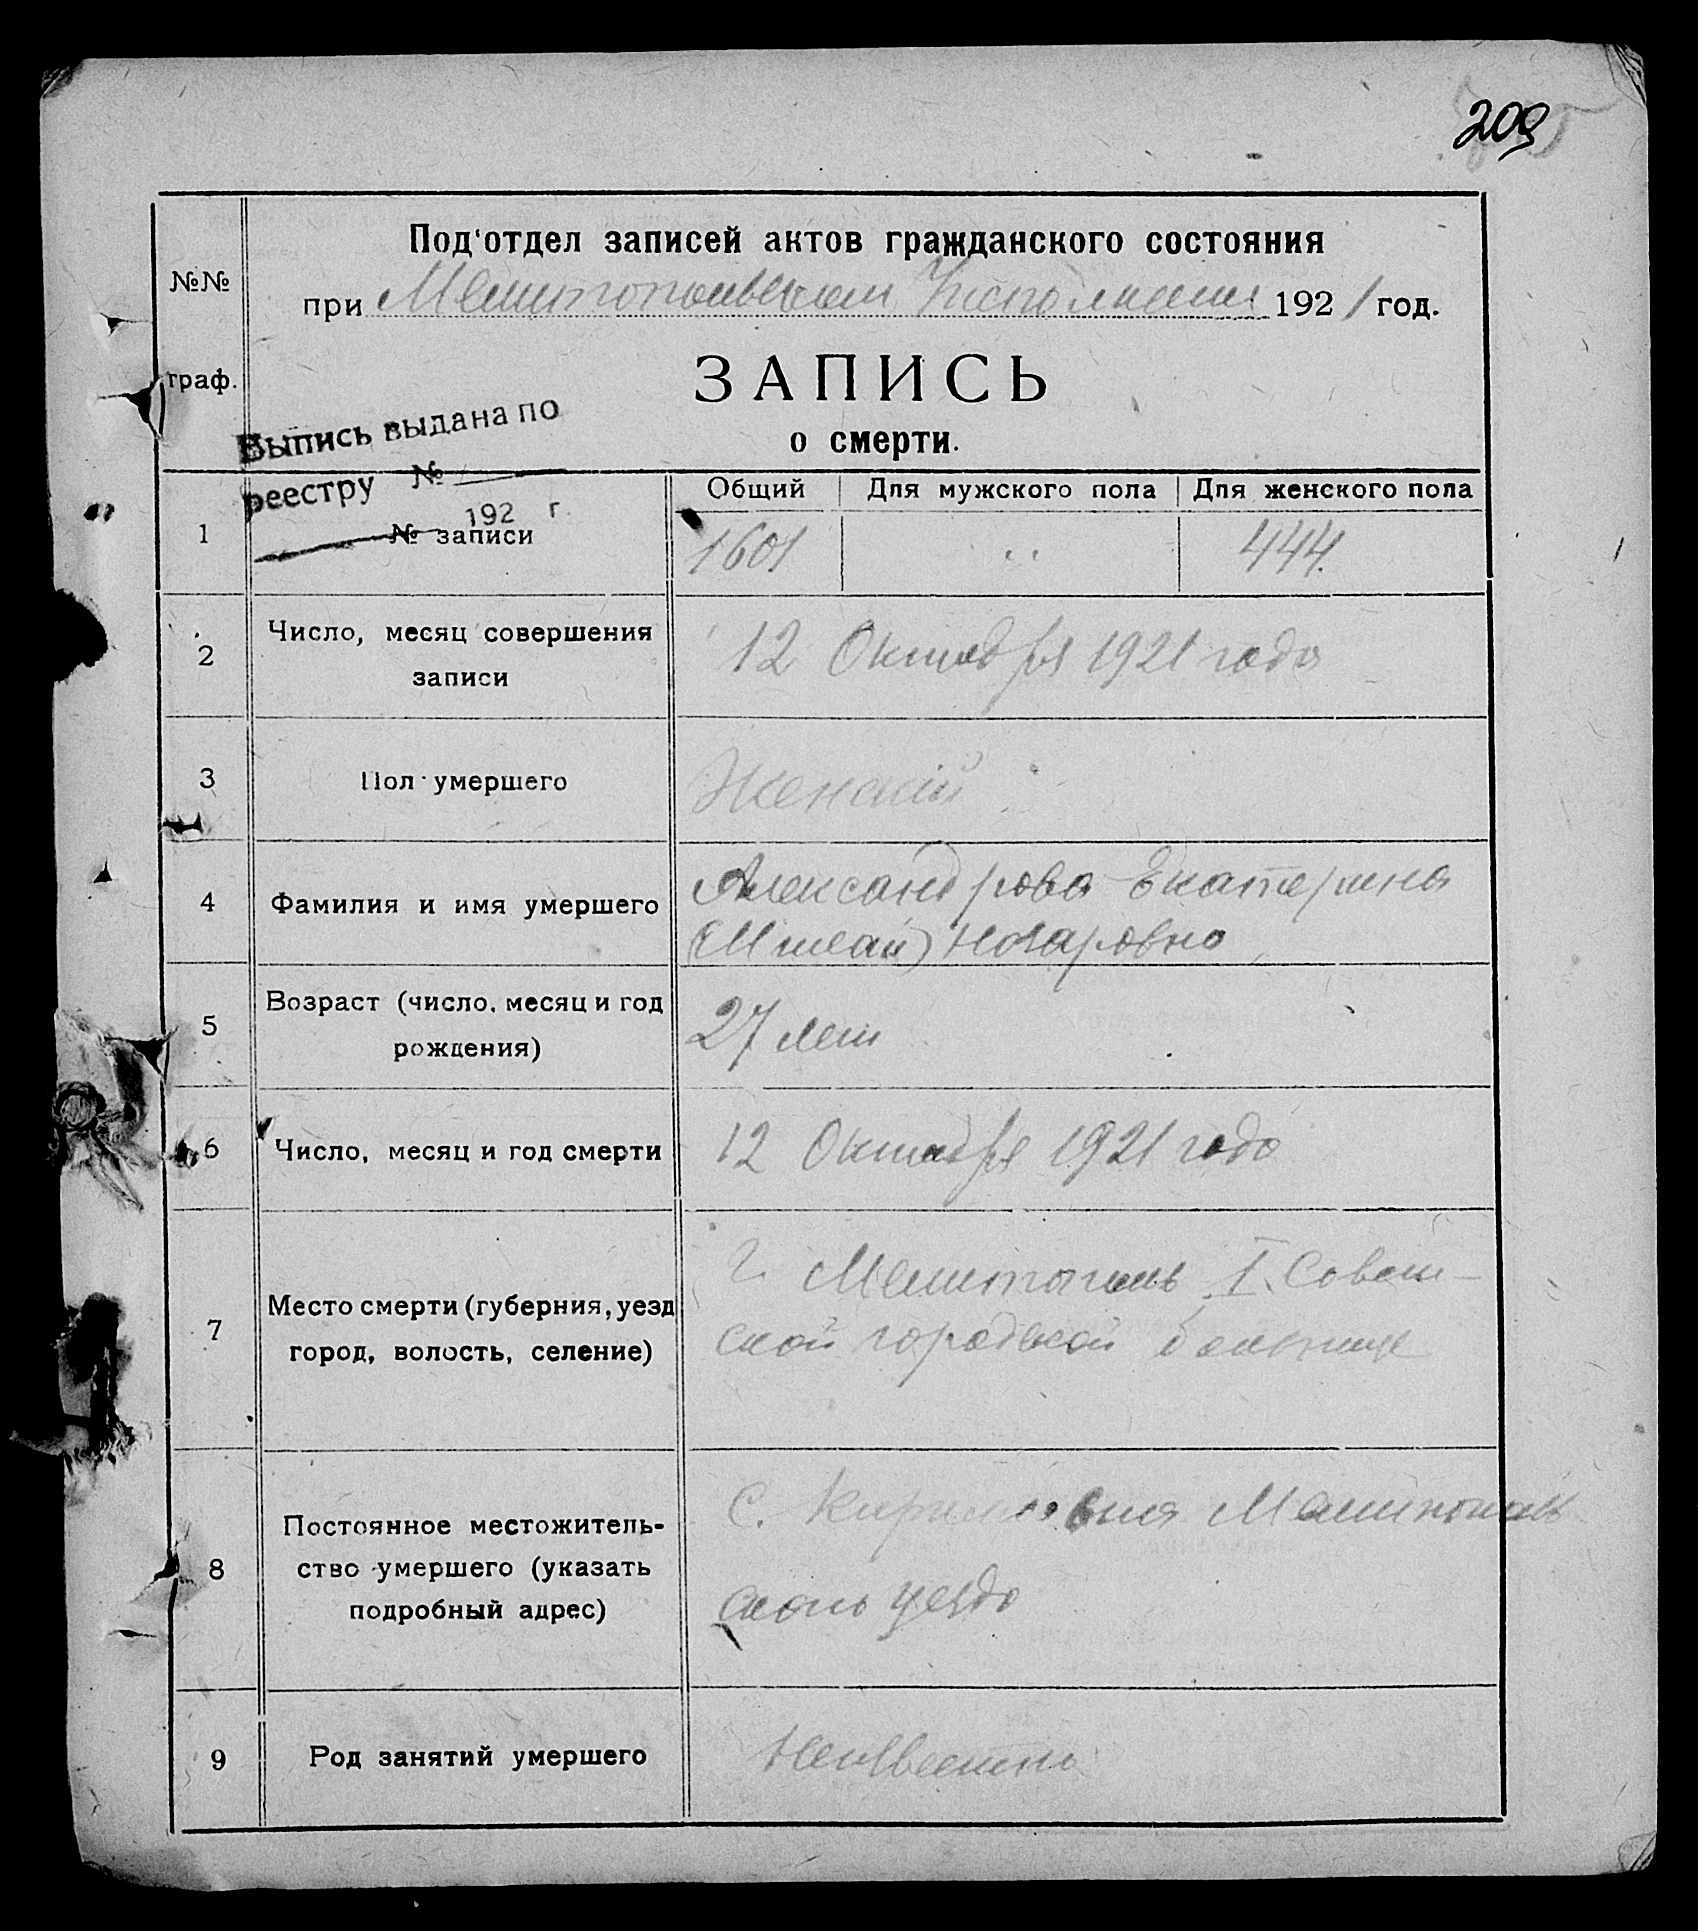 209
№№
граф.
Под'отдел записей актов гражданского состояния
при Мелитопольском Исполкоме 1921 год.
ЗАПИСЬ
о смерти.
Выпись выдана по
реестру №
192 г.
Общий Для мужского пола Для женского пола
1 № записи 1601 " 444.
2 Число, месяц совершения
записи
12 Октября 1921 года
3 Пол умершего Женский
4 Фамилия и имя умершего
Александрова Екатерина
Назаровна
5 Возраст (число, месяц и год
рождения)
27 лет
6 Число, месяц и год смерти 12 Октября 1921 года
7 Место смерти (губерния, уезд
город, волость, селение)
г. Мелитополь I Совет-
ской городской больнице
8 Постоянное местожитель-
ство умершего (указать
подробный адрес)
С. Мелитополь
ского уезда
9 Род занятий умершего Неизвестно